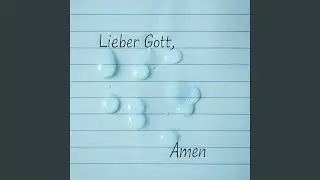 Lieber Gott,
Amen